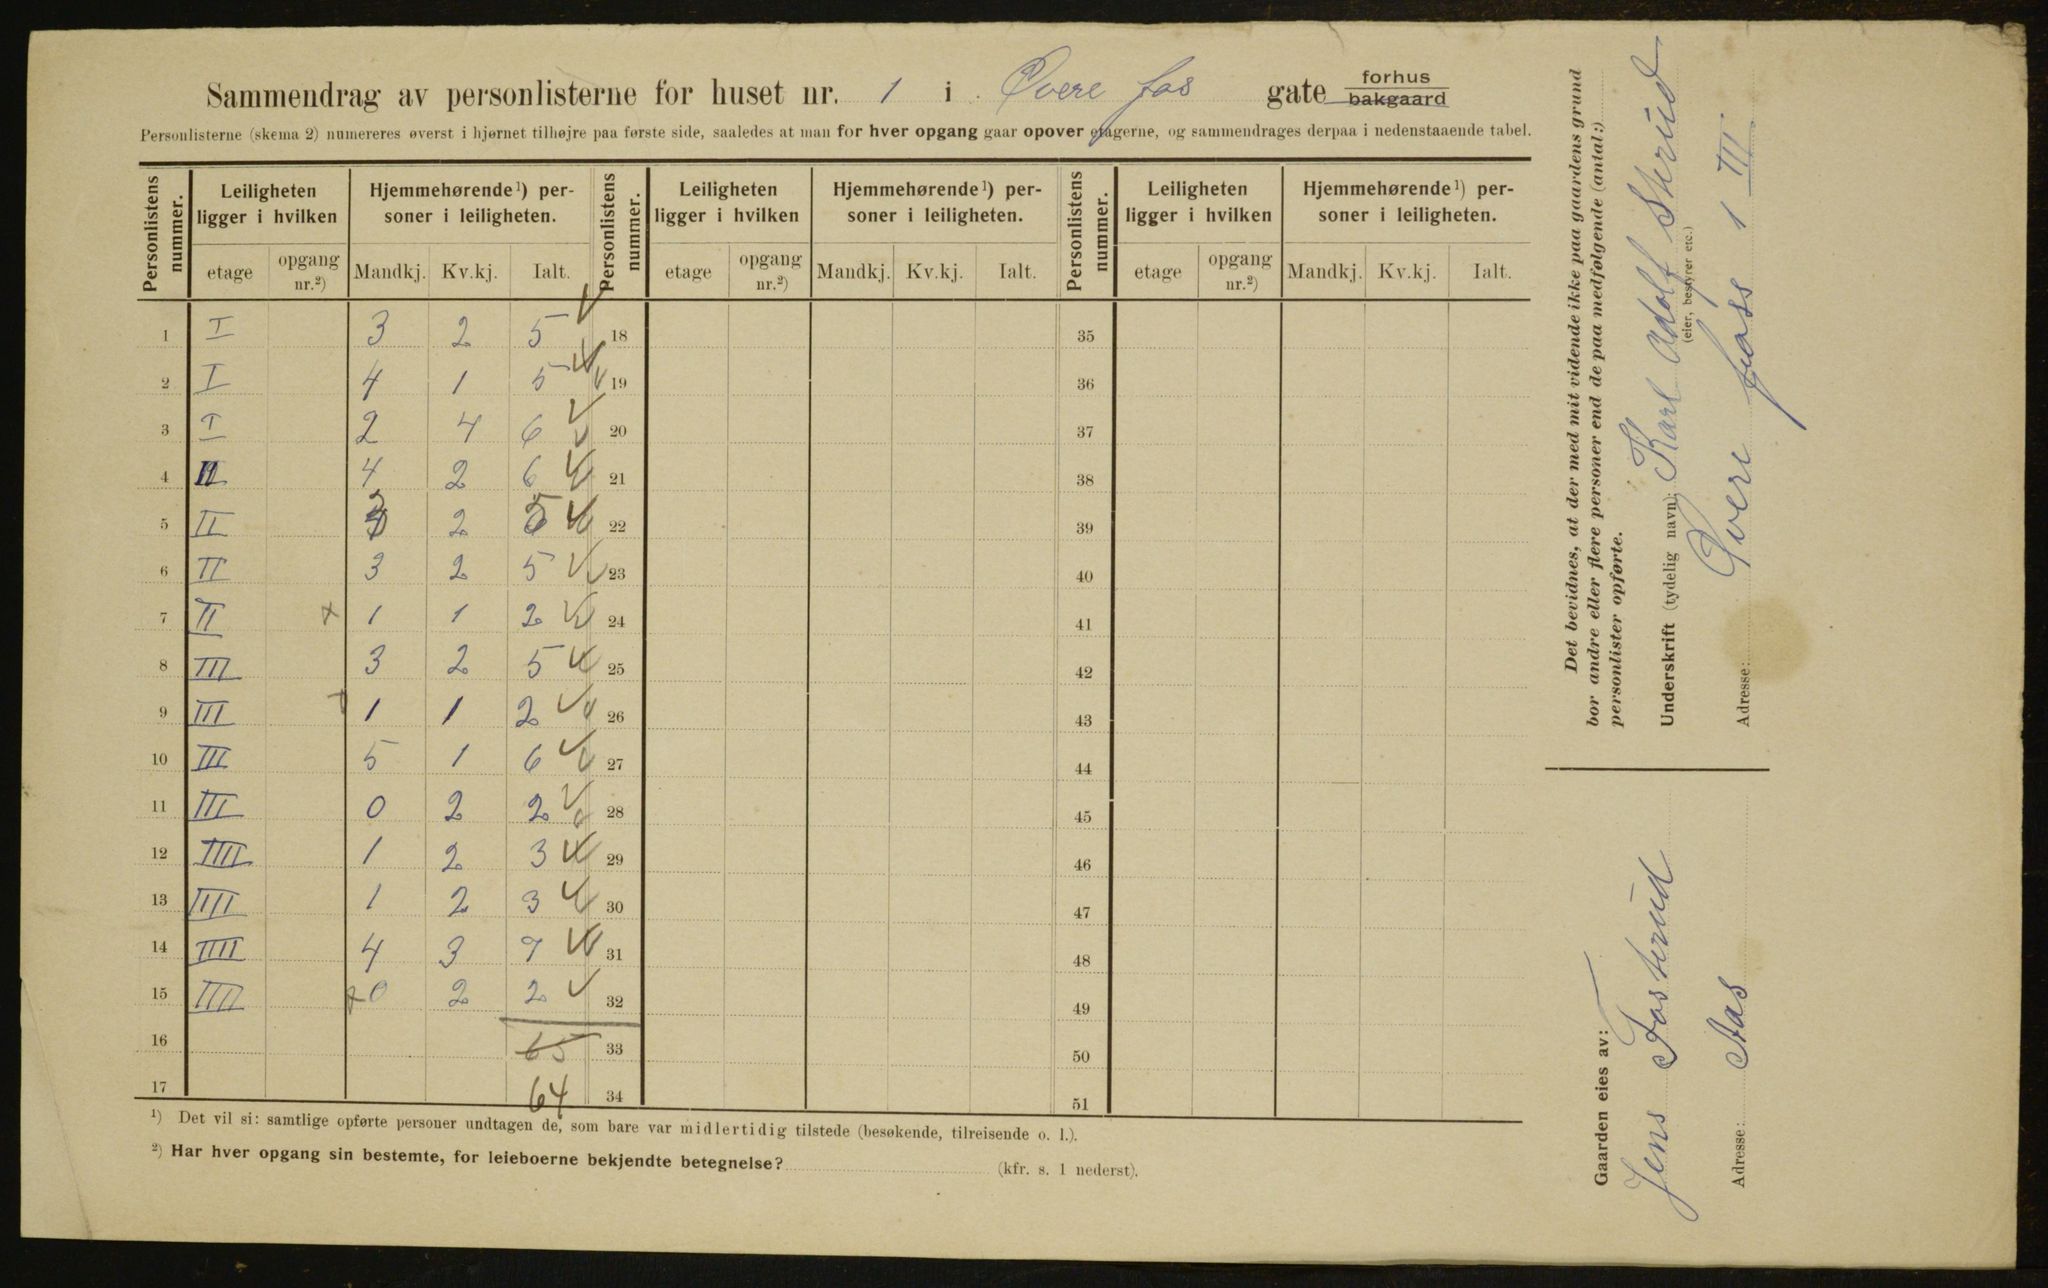 Sammendrag av personlisterne for huset nr. 1 i Øvere fos gate forhus bakgaard
Personlisterne (skema 2) numereres øverst i hjørnet tilhøjre paa første side, saaledes at man for hver opgang gaar opover etagerne, og sammendrages derpaa i nedenstaaende tabel.
Personlistens nummer. Leiligheten ligger i hvilken Hjemmehørende¹) personer i leiligheten. Personlistens nummer. Leiligheten ligger i hvilken Hjemmehørende¹) personer i leiligheten. Personlistens nummer. Leiligheten ligger i hvilken Hjemmehørende¹) personer i leiligheten.
etage opgang nr.²) Mandkj. Kv.kj. Ialt. etage opgang nr.²) Mandkj. Kv.kj. Ialt. etage opgang nr.²) Mandkj. Kv.kj. Ialt.
1 I 3 2 5 18 35
2 I 4 1 5 19 36
3 I 2 4 6 20 37
4 II 4 2 6 21 38
5 II 3 2 5 22 39
6 II 3 2 5 23 40
7 II 1 1 2 24 41
8 III 3 2 5 25 42
9 III 1 1 2 26 43
10 III 5 1 6 27 44
11 III 0 2 2 28 45
12 IIII 1 2 3 29 46
13 IIII 1 2 3 30 47
14 IIII 4 3 7 31 48
15 IIII 0 2 2 32 49
16 65 33 50
17 64 34 51
¹) Det vil si: samtlige opførte personer undtagen de, som bare var midlertidig tilstede (besøkende, tilreisende o. l.).
²) Har hver opgang sin bestemte, for leieboerne bekjendte betegnelse? (kfr. s. 1 nederst).
Det bevidnes, at der med mit vidende ikke paa gaardens grund
bor andre eller flere personer end de paa medfølgende (antal:)
personlister opførte.
Underskrift (tydelig navn): Karl Adolf Skrud
(eier, bestyrer etc.)
Adresse: Øvere foss 1 III
Gaarden eies av:
Jens Fosterud
Adresse: Aas